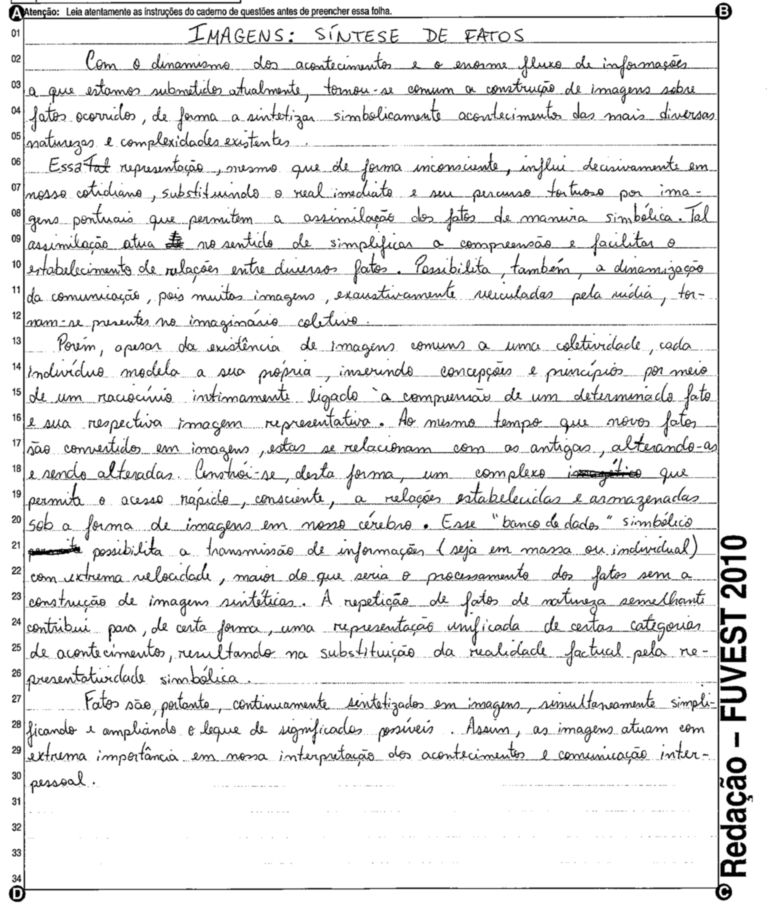 Atenção: Leia atentamente as instruções do caderno de questões antes de preencher essa folha.
A
B
01 IMAGENS: SÍNTESE DE FATOS
02 Com o dinamismo dos acontecimentos e o enorme fluxo de informações
03 a que estamos submetidos atualmente, tornou-se comum a construção de imagens sobre
04 fatos ocorridos, de forma a sintetizar simbolicamente acontecimentos das mais diversas
05 naturezas e complexidades existentes.
06 Essa Tal representação, mesmo que de forma inconsciente, influi decisivamente em
07 nosso cotidiano, substituindo o real imediato e seu percurso tortuoso por ima-
08 gens pontuais que permitem a assimilação dos fatos de maneira simbólica. Tal
09 assimilação atua no sentido de simplificar a compreensão e facilitar o
10 estabelecimento de relações entre diversos fatos. Possibilita, também, a dinamização
11 da comunicação, pois muitas imagens, exaustivamente veiculadas pela mídia, tor-
12 nam-se presentes no imaginário coletivo.
13 Porém, apesar da existência de imagens comuns a uma coletividade, cada
14 indivíduo modela a sua própria, inserindo concepções e princípios por meio
15 de um raciocínio intimamente ligado à compreensão de um determinado fato
16 e sua respectiva imagem representativa. Ao mesmo tempo que novos fatos
17 são convertidos em imagens, estas se relacionam com as antigas, alterando-as
18 e sendo alteradas. Constrói-se, desta forma, um complexo imagético que
19 permita o acesso rápido, consciente, a relações estabelecidas e armazenadas
20 sob a forma de imagens em nosso cérebro. Esse "banco de dados" simbólico
21 possibilita a transmissão de informações (seja em massa ou individual)
22 com extrema velocidade, maior do que seria o processamento dos fatos sem a
23 construção de imagens sintéticas. A repetição de fatos de natureza semelhante
24 contribui para, de certa forma, uma representação unificada de certas categorias
25 de acontecimentos, resultando na substituição da realidade factual pela re-
26 presentatividade simbólica.
27 Fatos são, portanto, continuamente sintetizados em imagens, simultaneamente simpli-
28 ficando e ampliando o leque de significados possíveis. Assim, as imagens atuam com
29 extrema importância em nossa interpretação dos acontecimentos e comunicação inter-
30 pessoal.
31
32
33
34
D
C
Redação – FUVEST 2010